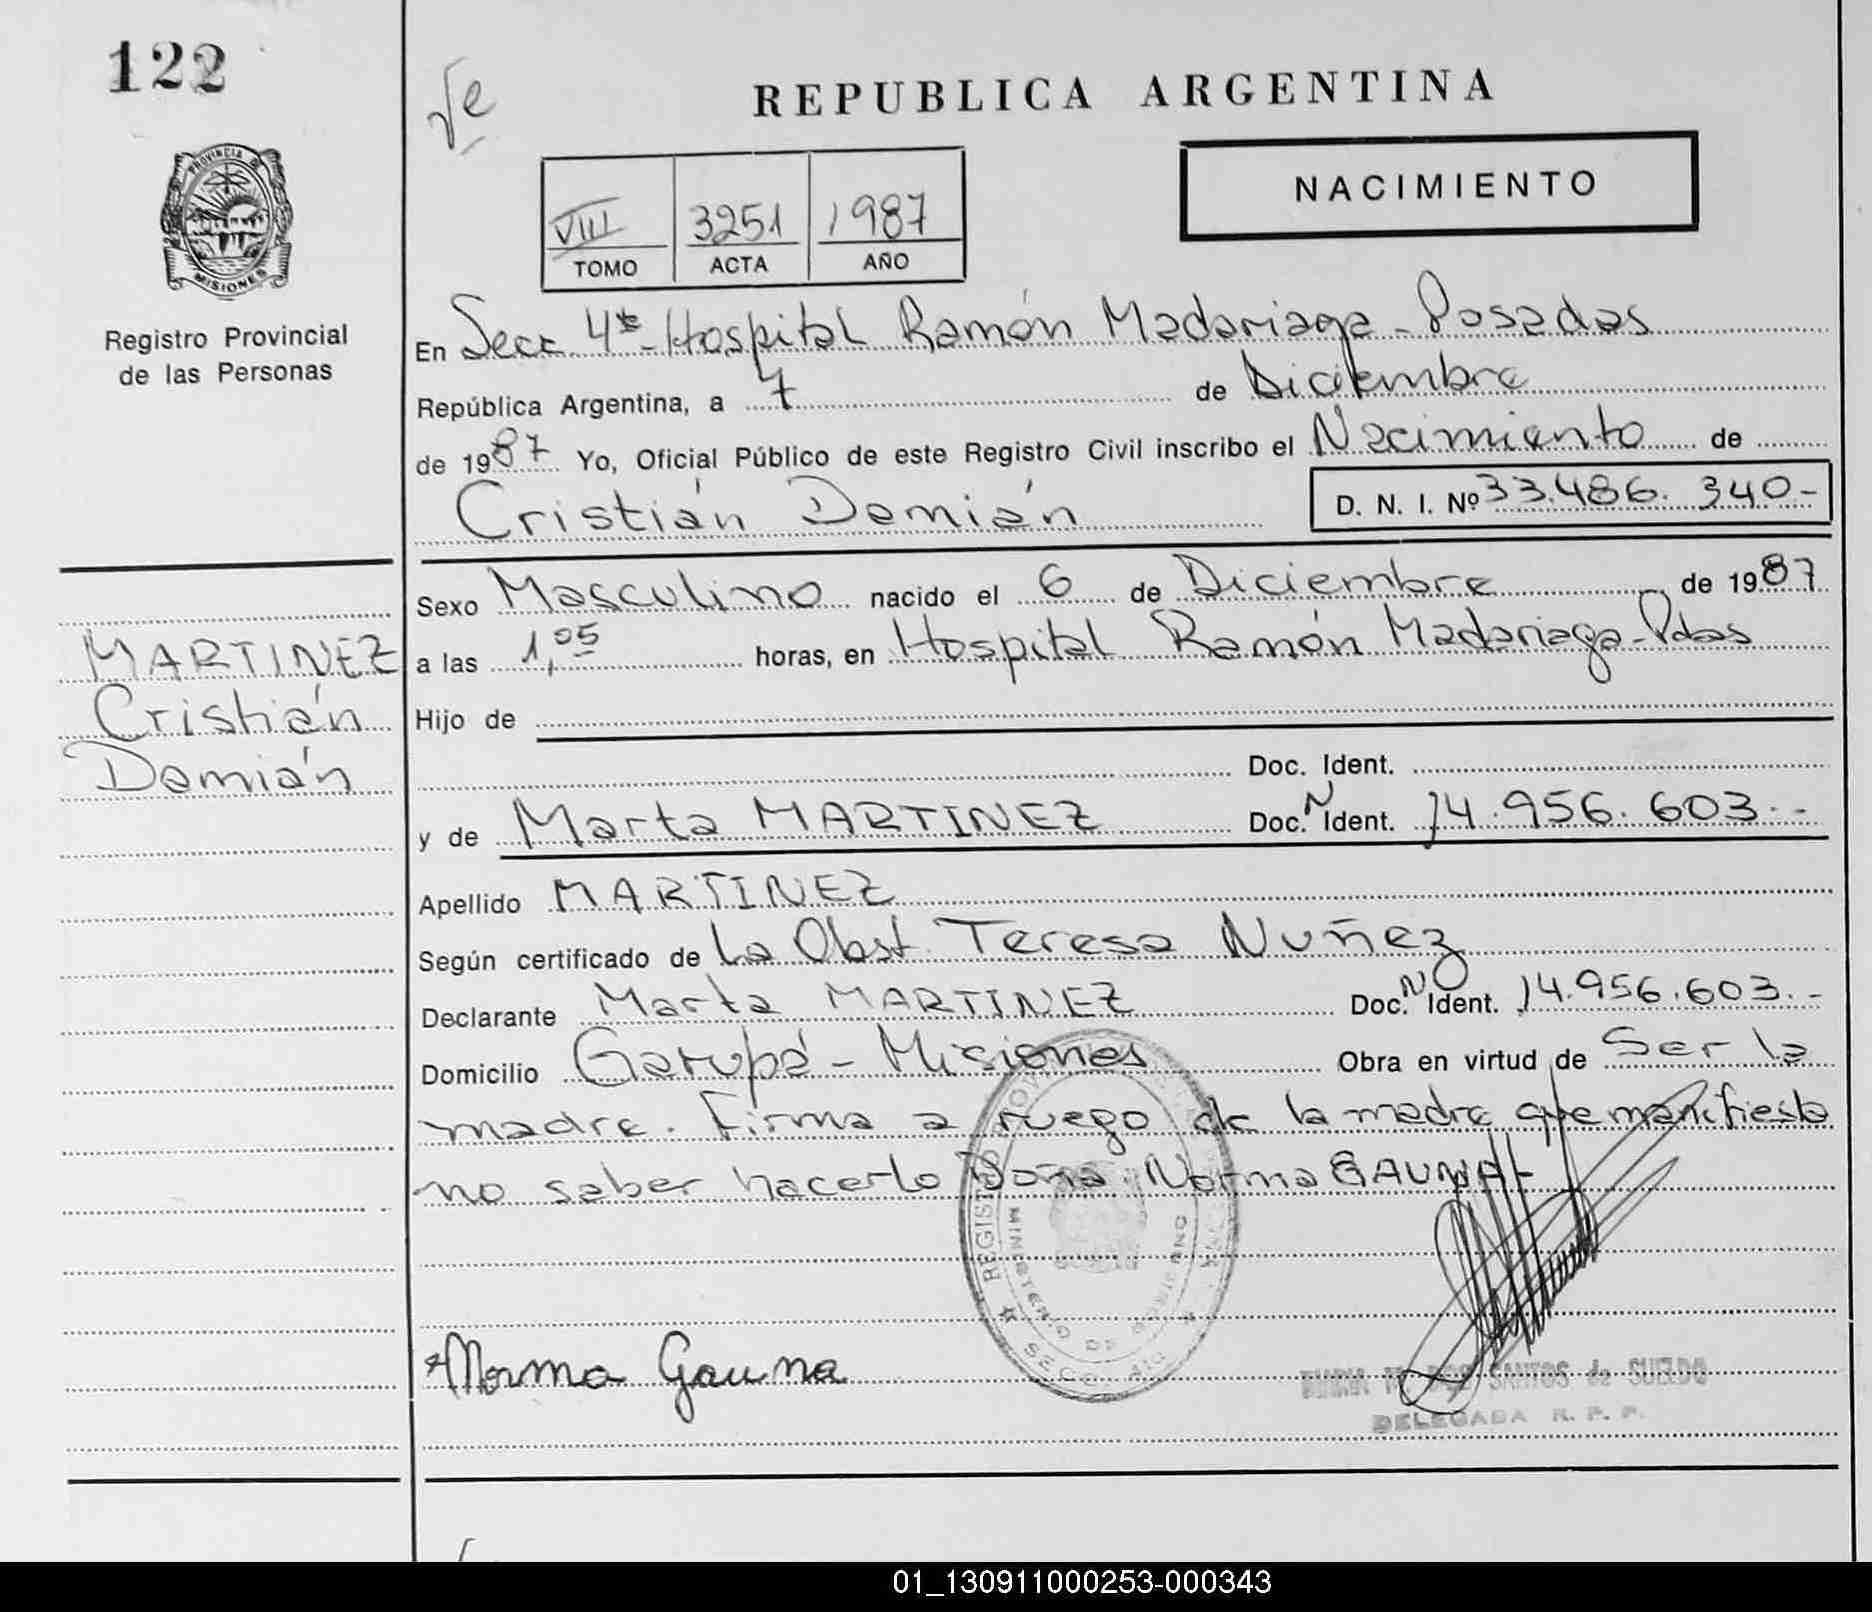 122
REPUBLICA ARGENTINA
NACIMIENTO
VIII 3251 1987
TOMO ACTA AÑO
PROVINCIA DE
MISIONES
Registro Provincial
de las Personas
En Secc 4ta - Hospital Ramón Madariaga - Posadas
República Argentina, a 7 de Diciembre
de 1987 Yo, Oficial Público de este Registro Civil inscribo el Nacimiento de
Cristián Demián D. N. I. Nº 33.486.340.-
Sexo Masculino nacido el 6 de Diciembre de 1987
a las 1,05 horas, en Hospital Ramón Madariaga - Pdas
Hijo de
Doc. Ident.
y de Marta MARTINEZ Doc. N Ident. 14.956.603.-
Apellido MARTINEZ
Según certificado de La Obst. Teresa Nuñez
Declarante Marta MARTINEZ Doc. N Ident. 14.956.603.-
Domicilio Garupá - Misiones Obra en virtud de Ser la
madre. Firma a ruego de la madre que manifiesta
no saber hacerlo Doña Norma GAUNA
MARTINEZ
Cristián
Demián
REGISTRO
MINISTERIO DE GOBIERNO
SECC. 4ta
Norma Gauna
DOS SANTOS de SUELDO
DELEGADA R. P. P.
01_130911000253-000343